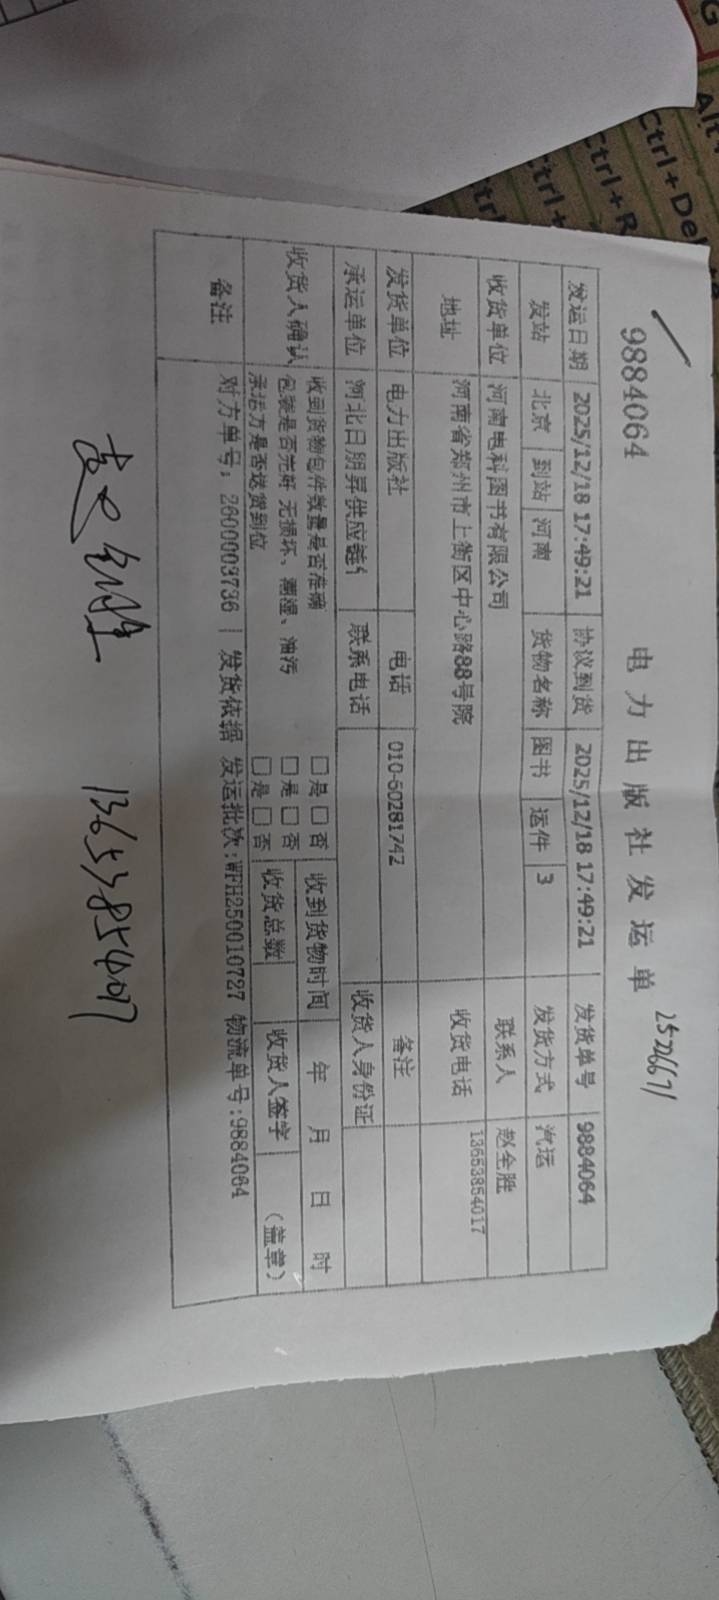 9884064
电力出版社发运单
25226671
发运日期 2025/12/18 17:49:21 协议到货 2025/12/18 17:49:21 发货单号 9884064
发站 北京 到站 河南 货物名称 图书 运件 3 发货方式 汽运
收货单位 河南电科图书有限公司 联系人 赵全胜
地址 河南省郑州市上街区中心路88号院 收货电话 13653854017
发货单位 电力出版社 电话 010-60281742 备注
承运单位 河北日朋昇供应链 联系电话 收货人身份证
收货人确认 收到货物包件数量是否准确 □是□否 收到货物时间 年 月 日 时
包装是否完好 无损坏、潮湿、油污 □是□否 收货总数 收货人签字 （盖章）
承运方是否送货到位 □是□否
备注 对方单号：2600003736 | 发货依据 发运批次:WFH250010727 物流单号:9884064
13653854017
Alt+
Ctrl+Del
Ctrl+R
Ctrl+